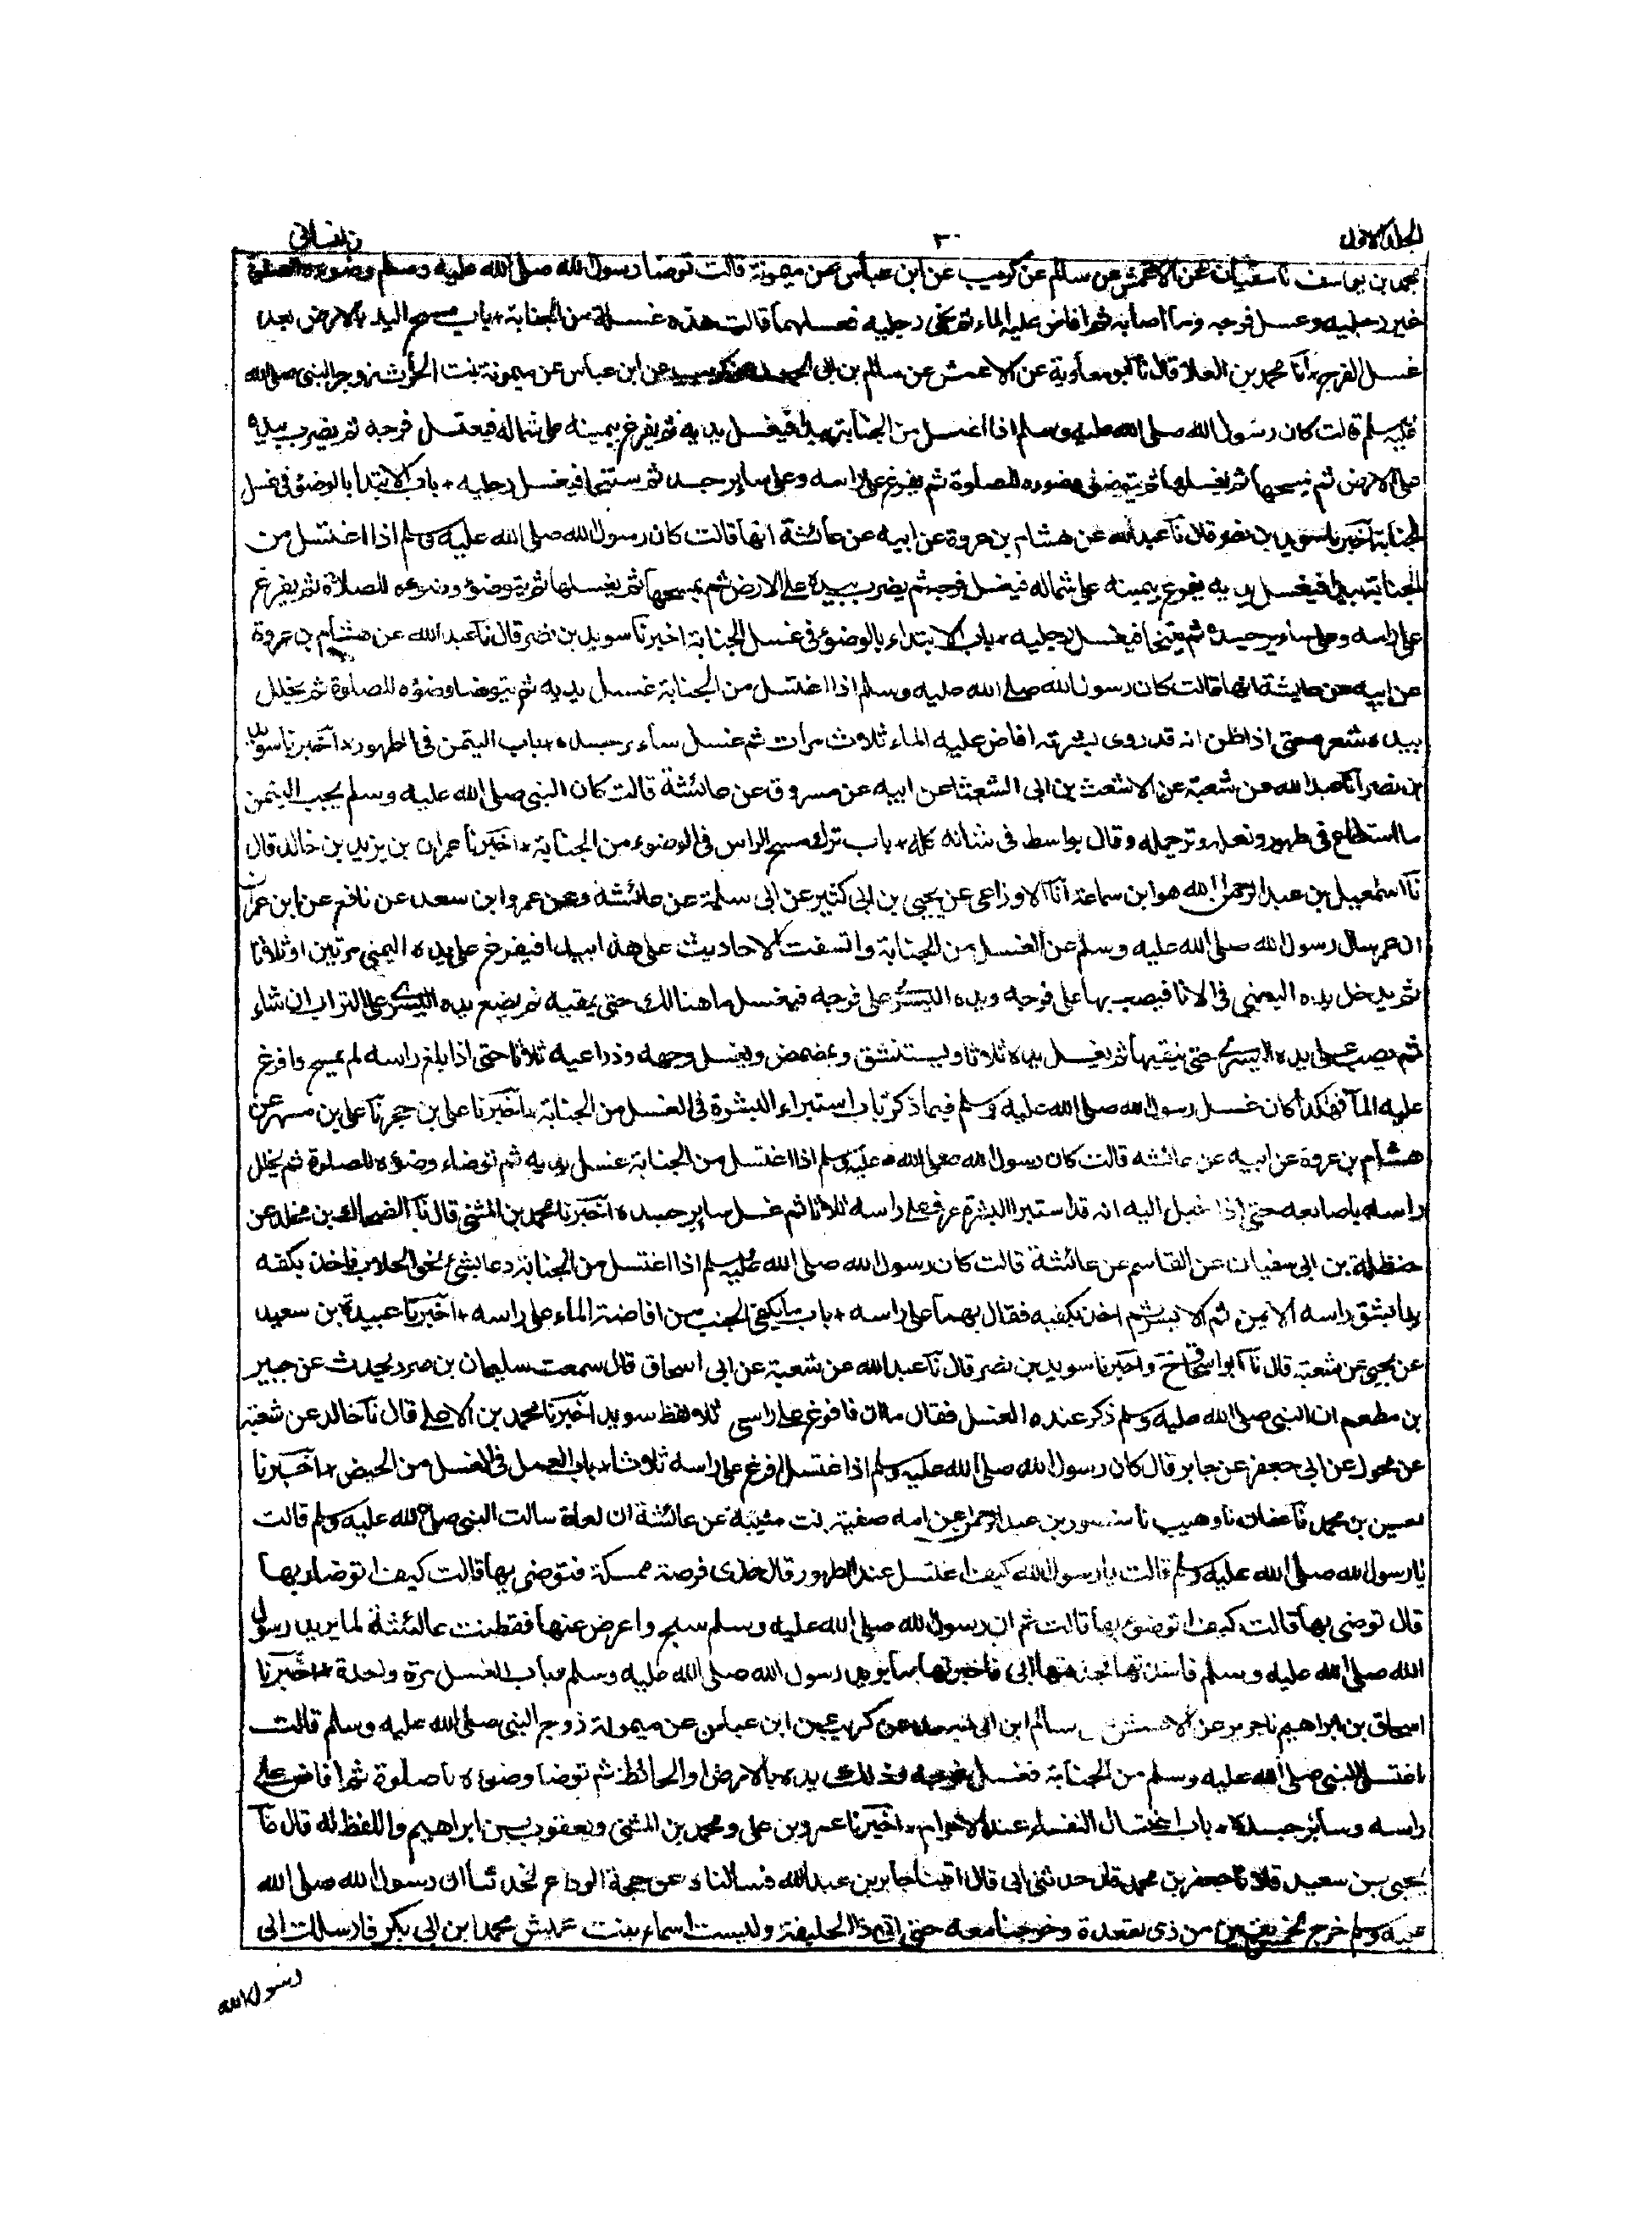 الجلد الاول ٣٠ نسائی
محمد بن يوسف نا سفيان عن الاعمش عن سالم عن كريب عن ابن عباس عن ميمونة قالت توضا رسول الله صلى الله عليه وسلم وضوءه للصلوة
غير رجليه وغسل فرجه وما اصابه ثم افاض عليه الماء ثم نحى رجليه فغسلهما قالت هذه غسلة من الجنابة + باب مسح اليد بالارض بعد
غسل الفرج + انا محمد بن العلا قال نا ابو معاوية عن الاعمش عن سالم بن ابى الجعد عن كريب عن ابن عباس عن ميمونة بنت الحارث زوج النبى صلى الله
عليه سلم قالت كان رسول الله صلى الله عليه وسلم اذا اغتسل من الجنابة يبدا فيغسل يديه ثم يفرغ بيمينه على شماله فيغسل فرجه ثم يضرب بيده
على الارض ثم يمسحها ثم يغسلها ثم يتوضى وضوءه للصلوة ثم يفرغ على راسه وعلى ساير جسده ثم يتنحا فيغسل رجليه + باب الابتدا بالوضوء فى غسل
الجنابة اخبرنا سويد بن نصر قال نا عبد الله عن هشام بن عروة عن ابيه عن عائشة انها قالت كان رسول الله صلى الله عليه وسلم اذا اغتسل من
الجنابة يبدا فيغسل يديه يفرغ بيمينه على شماله فيغسل فرجه ثم يضرب بيده على الارض ثم يمسحها ثم يغسلها ثم يتوضؤ وضوءه للصلاة ثم يفرغ
على راسه وعلى ساير جسده ثم يتنحا فيغسل رجليه + باب الابتداء بالوضوء فى غسل الجنابة اخبرنا سويد بن نصر قال نا عبد الله عن هشام بن عروة
عن ابيه عن عايشة انها قالت كان رسول الله صلى الله عليه وسلم اذا اغتسل من الجنابة غسل يديه ثم يتوضا وضوءه للصلوة ثم يخلل
بيده شعره حتى اذا ظن انه قد روى بشرته افاض عليه الماء ثلاث مرات ثم غسل ساءر جسده + باب التيمن فى الطهور + اخبرنا سويد
بن نصر انا عبد الله عن شعبة عن الاشعث بن ابى الشعثا عن ابيه عن مسروق عن عائشة قالت كان النبى صلى الله عليه وسلم يحب التيمن
ما استطاع فى طهوره ونعله وترجله وقال بواسط فى شانه كله + باب ترك مسح الراس فى الوضوء من الجنابة + اخبرنا عمران بن يزيد بن خالد قال
نا اسمعيل بن عبد الله هو ابن سماعة انا الاوزاعى عن يحيى بن ابى كثير عن ابى سلمة عن عائشة وعن عمرو ابن سعد عن نافع عن ابن عمر ان
ان عمر سال رسول الله صلى الله عليه وسلم عن الغسل من الجنابة واتسقت الاحاديث على هذا يبدا فيفرغ على يده اليمنى مرتين او ثلاثا
ثم يدخل يده اليمنى فى الانا فيصب بها على فرجه ويده اليسرى على فرجه فيغسل ما هنالك حتى ينقيه ثم يضع يده اليسرى على التراب ان شاء
ثم يصب على يده اليسرى حتى ينقيها ثم يغسل يده ثلاثا ويستنشق ويمضمض ويغسل وجهه وذراعيه ثلاثا حتى اذا بلغ راسه لم يمسح وافرغ
عليه الماء فهكذا كان غسل رسول الله صلى الله عليه وسلم فيما ذكر باب استبراء البشرة فى الغسل من الجنابة + اخبرنا على بن حجر نا على بن مسهر عن
هشام بن عروة عن ابيه عن عائشة قالت كان رسول الله صلى الله عليه وسلم اذا اغتسل من الجنابة غسل يديه ثم توضاء وضوءه للصلوة ثم يخلل
راسه باصابعه حتى اذا خيل اليه انه قد استبرا البشرة غرف على راسه ثلاثا ثم غسل ساير جسده اخبرنا محمد بن المثنى قال نا الضحاك بن مخلد عن
حنظلة بن ابى سفيان عن القاسم عن عائشة قالت كان رسول الله صلى الله عليه سلم اذا اغتسل من الجنابة دعا بشئ نحو الحلاب فاخذ بكفه
بدا بشق راسه الايمن ثم الايسر ثم اخذ بكفيه فقال بهما على راسه + باب ما يكفى الجنب من افاضة الماء على راسه + اخبرنا عبيد الله بن سعيد
عن يحيى عن شعبة قال نا ابو اسحاق ح واخبرنا سويد بن نصر قال نا عبد الله عن شعبة عن ابى اسحاق قال سمعت سليمان بن صرد يحدث عن جبير
بن مطعم ان النبى صلى الله عليه وسلم ذكر عنده الغسل فقال اما انا فافرغ على راسى ثلاثا لفظ سويد اخبرنا محمد بن الاعلى قال نا خالد عن شعبة
عن مخول عن ابى جعفر عن جابر قال كان رسول الله صلى الله عليه وسلم اذا اغتسل افرغ على راسه ثلاثا + باب العمل فى الغسل من الحيض + اخبرنا
حسين بن محمد نا عفان نا وهيب نا منصور بن عبد الرحمن عن امه صفية بنت شيبة عن عائشة ان امراة سالت النبى صلى الله عليه وسلم قالت
يا رسول الله صلى الله عليه وسلم قالت يا رسول الله كيف اغتسل عند الطهور قال خذى فرصة ممسكة فتوضى بها قالت كيف اتوضا بها
قال توضى بها قالت كيف اتوضؤ بها قالت ثم ان رسول الله صلى الله عليه وسلم سبح واعرض عنها فقطنت عائشة لما يريد رسول
الله صلى الله عليه وسلم قالت فاخذتها فجذبتها الى فاخبرتها بما يريد رسول الله صلى الله عليه وسلم + باب الغسل مرة واحدة + اخبرنا
اسحاق بن ابراهيم نا جرير عن الاعمش عن سالم ابن ابى الجعد عن كريب عن ابن عباس عن ميمونة زوج النبى صلى الله عليه وسلم قالت
اغتسل النبى صلى الله عليه وسلم من الجنابة فغسل فرجه ودلك يده بالارض او الحائط ثم توضا وضوءه للصلوة ثم افاض على
راسه وسائر جسده + باب اغتسال النفساء عند الاحرام + اخبرنا عمرو بن على ومحمد بن المثنى ويعقوب بن ابراهيم واللفظ له قال نا
يحيى بن سعيد قال نا جعفر بن محمد قال حدثنى ابى قال اتينا جابر بن عبد الله فسالناه عن حجة الوداع فحدثنا ان رسول الله صلى الله
عليه وسلم خرج لخمس بقين من ذى القعدة وخرجنا معه حتى اتى ذا الحليفة ولدت اسماء بنت عميس محمد ابن ابى بكر فارسلت الى
رسول الله